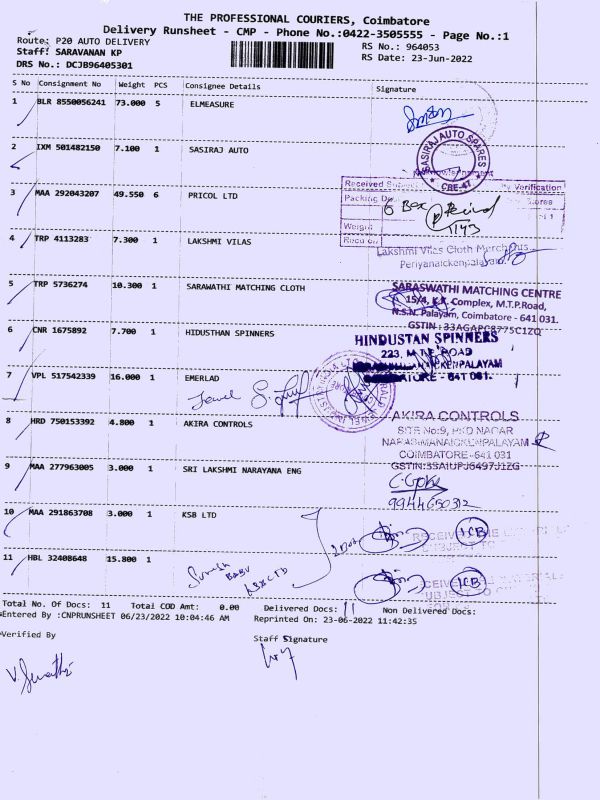 THE PROFESSIONAL COURIERS, Coimbatore
Delivery Runsheet - CMP - Phone No.:0422-3505555 - Page No.:1
Route: P20 AUTO DELIVERY
RS No.: 964053
Staff: SARAVANAN KP
RS Date: 23-Jun-2022
DRS No.: DCJB96405301
S No Consignment No Weight PCS Consignee Details Signature
1 BLR 8550056241 73.000 5 ELMEASURE
2 IXM 501482150 7.100 1 SASIRAJ AUTO
SASIRAJ AUTO SPARES
CBE-47
3 MAA 292043207 49.550 6 PRICOL LTD
Received Subject Verification
Packing
6 Box
Weight
1143
4 TRP 4113283 7.300 1 LAKSHMI VILAS
Lakshmi Vilas Cloth Merchants
Periyanaickenpalayam
5 TRP 5736274 10.300 1 SARAWATHI MATCHING CLOTH
SARASWATHI MATCHING CENTRE
15/4, K.K. Complex, M.T.P.Road,
N.S.N. Palayam, Coimbatore - 641 031.
6 CNR 1675892 7.700 1 HIDUSTHAN SPINNERS
HINDUSTAN SPINNERS
223, M.T.P. ROAD
7 VPL 517542339 16.000 1 EMERLAD
8 HRD 750153392 4.800 1 AKIRA CONTROLS
AKIRA CONTROLS
SITE No:9, HKD NAGAR
NARASIMANAICKENPALAYAM
COIMBATORE-641 031
GSTIN:33AIUPJ6497J1ZG
9 MAA 277963005 3.000 1 SRI LAKSHMI NARAYANA ENG
9944650312
10 MAA 291863708 3.000 1 KSB LTD
11 HBL 32408648 15.800 1
Suresh
BABU
Total No. Of Docs: 11 Total COD Amt: 0.00 Delivered Docs: 11 Non Delivered Docs:
Entered By :CNPRUNSHEET 06/23/2022 10:04:46 AM Reprinted On: 23-06-2022 11:42:35
Verified By
Staff Signature